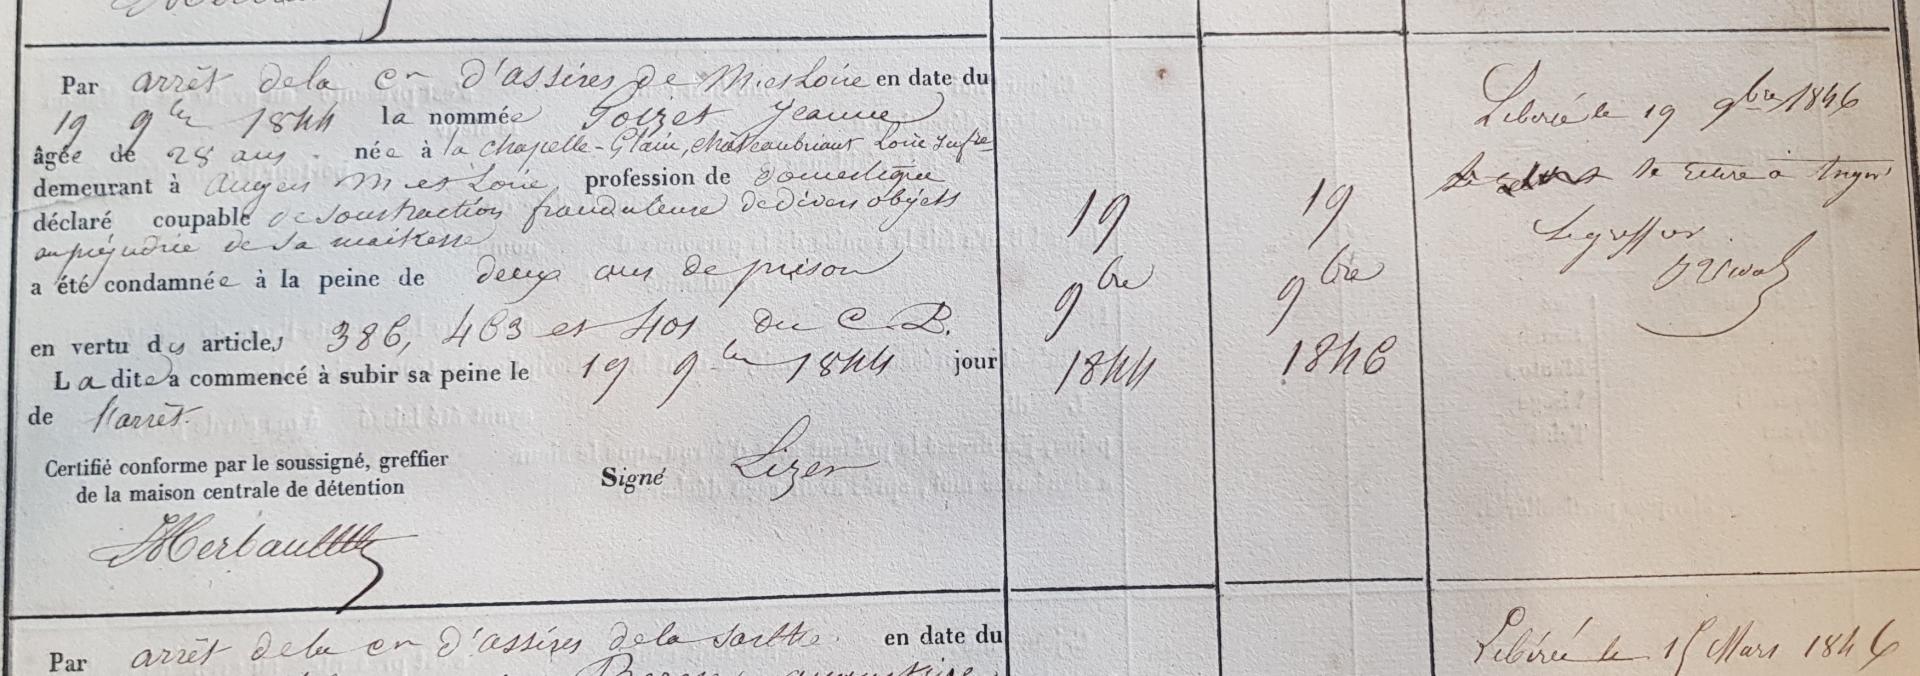 Par arrêt de la Cr d'assises de M. et Loire en date du
19 9bre 1844 la nommée Poizet Jeanne
âgée de 28 ans. née à la chapelle-Glain, chateaubriant Loire Infre
demeurant à Angers M et Loire, profession de Domestique
déclaré coupable de soustraction frauduleuse de divers objets
au préjudice de sa maitresse
a été condamnée à la peine de deux ans de prison
en vertu des articles 386, 463 et 401 du C P.
La dite a commencé à subir sa peine le 19 9bre 1844 jour
de l'arrêt.
Certifié conforme par le soussigné, greffier
de la maison centrale de détention
Signé Lizer
Herbault
19
9bre
1844
19
9bre
1846
Libérée le 19 9bre 1846
Se retire à Angers
Le greffier
Par arrêt de la Cr d'assises de la Sarthe. en date du
augustine
Libérée le 15 Mars 1846